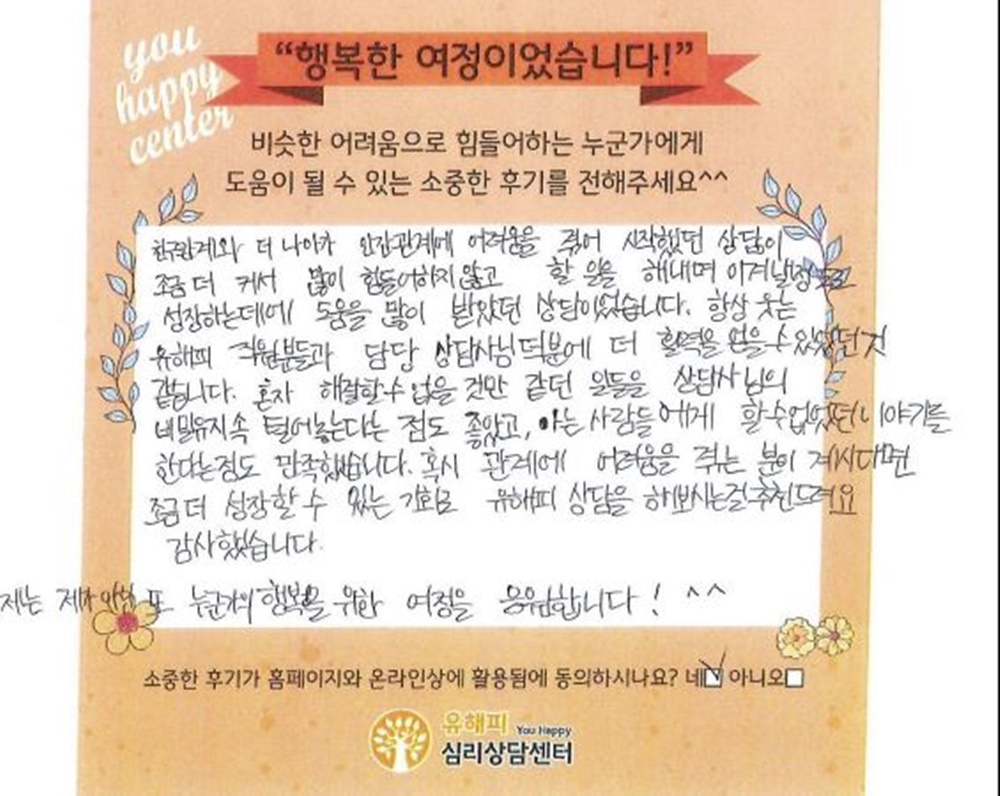 you
happy
center
“행복한 여정이었습니다!”
비슷한 어려움으로 힘들어하는 누군가에게
도움이 될 수 있는 소중한 후기를 전해주세요^^
친구관계와 더 나아가 인간관계에 어려움을 겪어 시작했던 상담이
조금 더 커서 많이 힘들어하지 않고 할 일을 해내며 이겨낼 정도로
성장하는데에 도움을 많이 받았던 상담이었습니다. 항상 웃는
유해피 직원분들과 담당 상담사님 덕분에 더 활력을 얻을 수 있었던 것
같습니다. 혼자 해결할 수 없을 것만 같던 일들을 상담사님의
비밀유지 속 털어놓는다는 점도 좋았고, 아는 사람들에게 할 수 없었던 이야기를
한다는 점도 만족했습니다. 혹시 관계에 어려움을 겪는 분이 계시다면
조금 더 성장할 수 있는 기회로 유해피 상담을 해보시는걸 추천드려요
감사했습니다.
저는 제가 아닌 또 누군가의 행복을 위한 여정을 응원합니다! ^^
소중한 후기가 홈페이지와 온라인상에 활용됨에 동의하시나요? 네☑ 아니오□
유해피 You Happy
심리상담센터